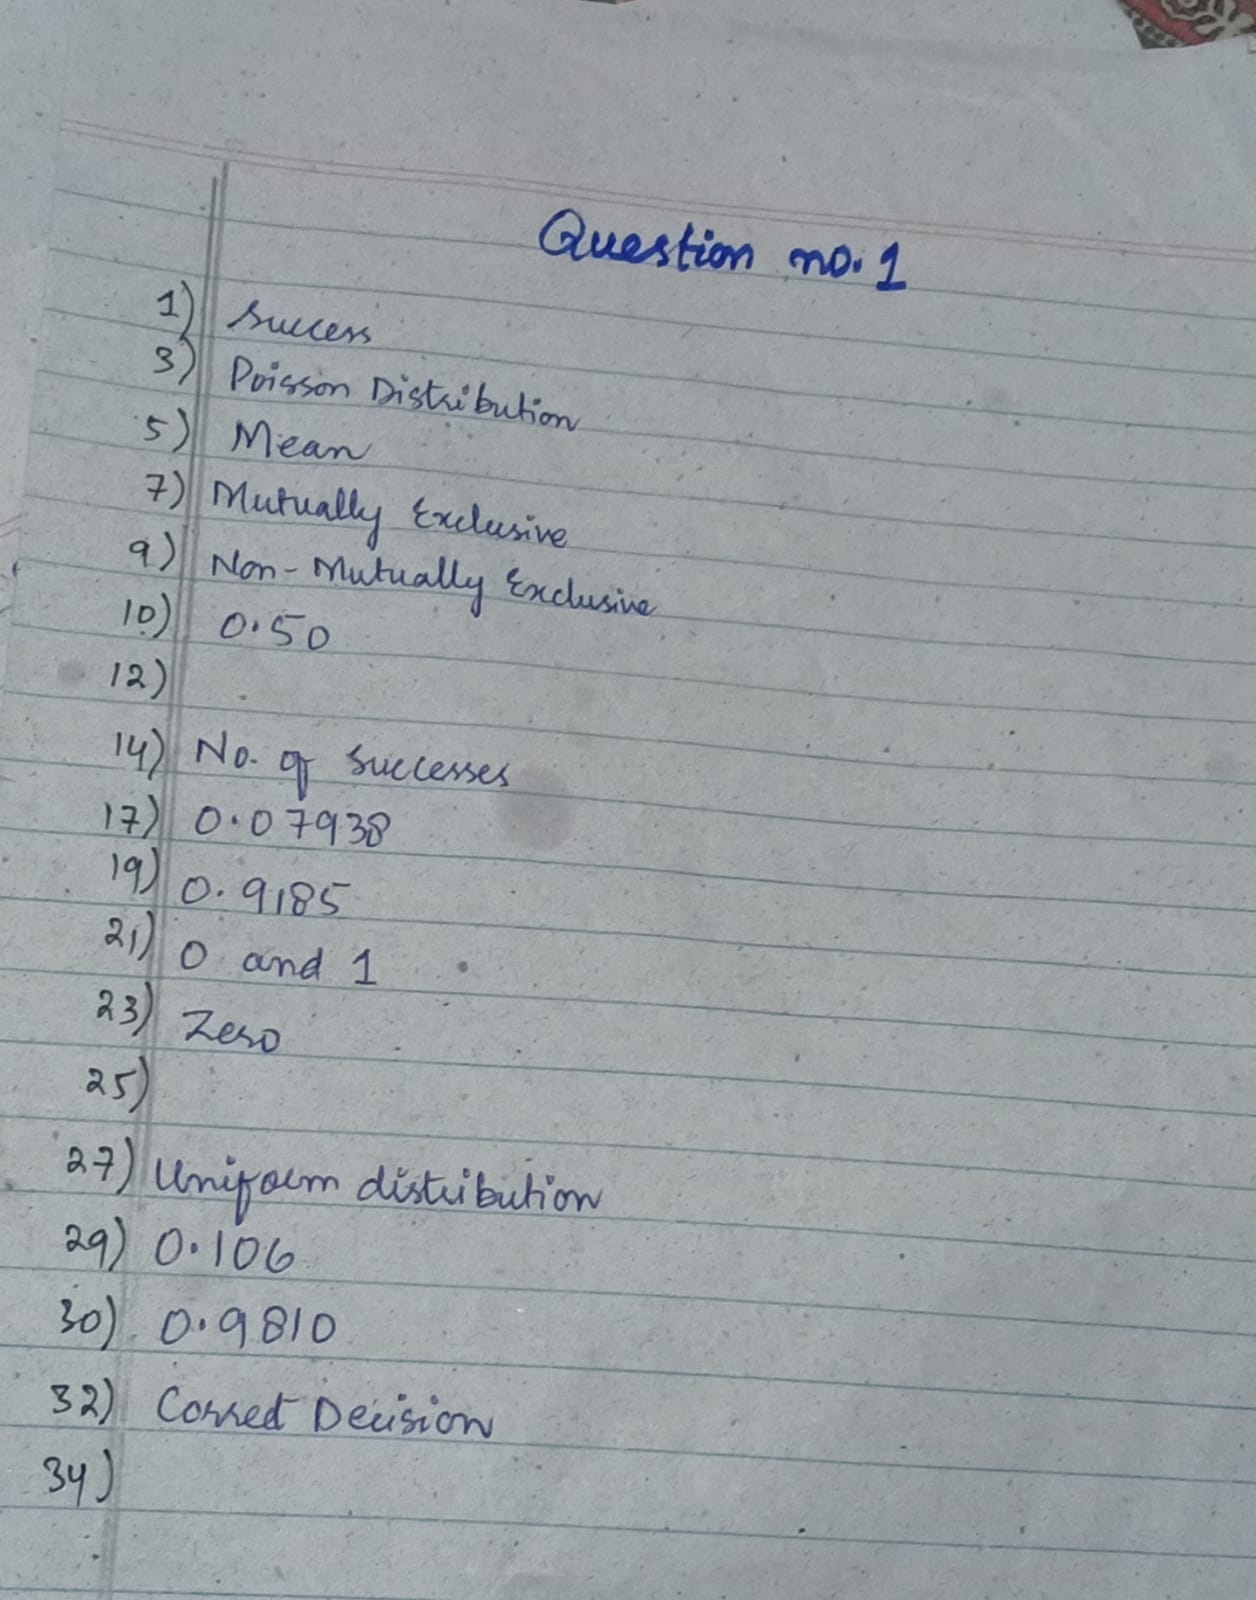 Question no. 1
1) Success
3) Poisson Distribution
5) Mean
7) Mutually Exclusive
9) Non-Mutually Exclusive
10) 0.50
12)
14) No. of Successes
17) 0.07938
19) 0.9185
21) 0 and 1
23) Zero
25)
27) Uniform distribution
29) 0.106
30) 0.9810
32) Correct Decision
34)